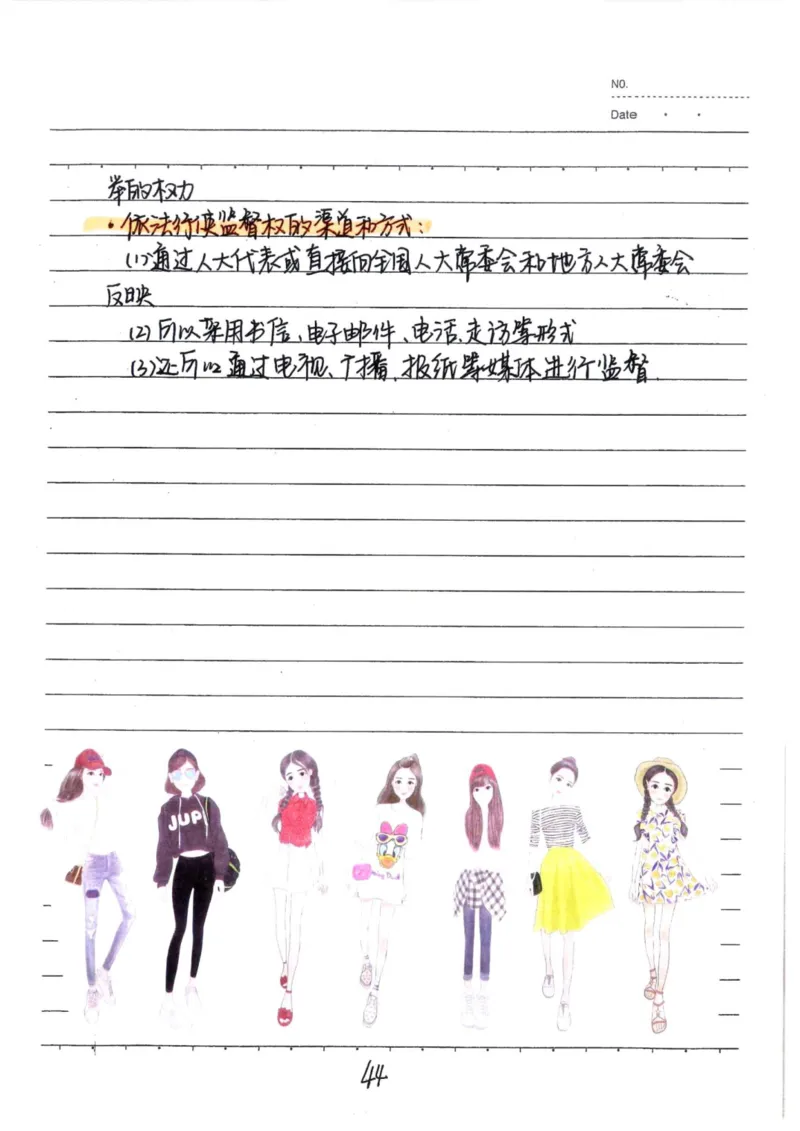 NO.
Date
举的权力
·依法行使监督权的渠道和方式:
(1)通过人大代表或直接向全国人大常委会和地方人大常委会
反映
(2)可以采用书信、电子邮件、电话、走访等形式
(3)还可以通过电视、广播、报纸等媒体进行监督.
JUP
44